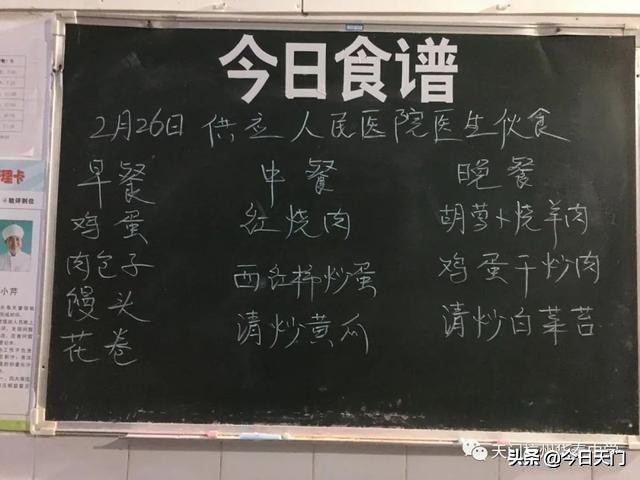 今日食谱
2月26日 供应人民医院医生伙食
早餐 中餐 晚餐
鸡蛋 红烧肉 胡萝卜烧羊肉
肉包子 西红柿炒蛋 鸡蛋干炒肉
馒头 清炒黄瓜 清炒白菜苔
花卷
理卡
小芹
头条 @今日天门